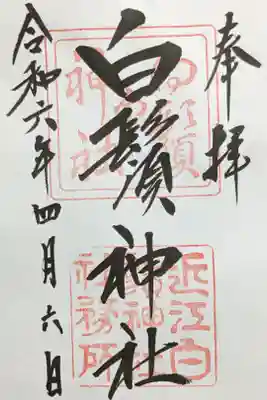 奉拝
白鬚神社
令和六年四月六日
白鬚
神社
近江白
鬚神社
社務所